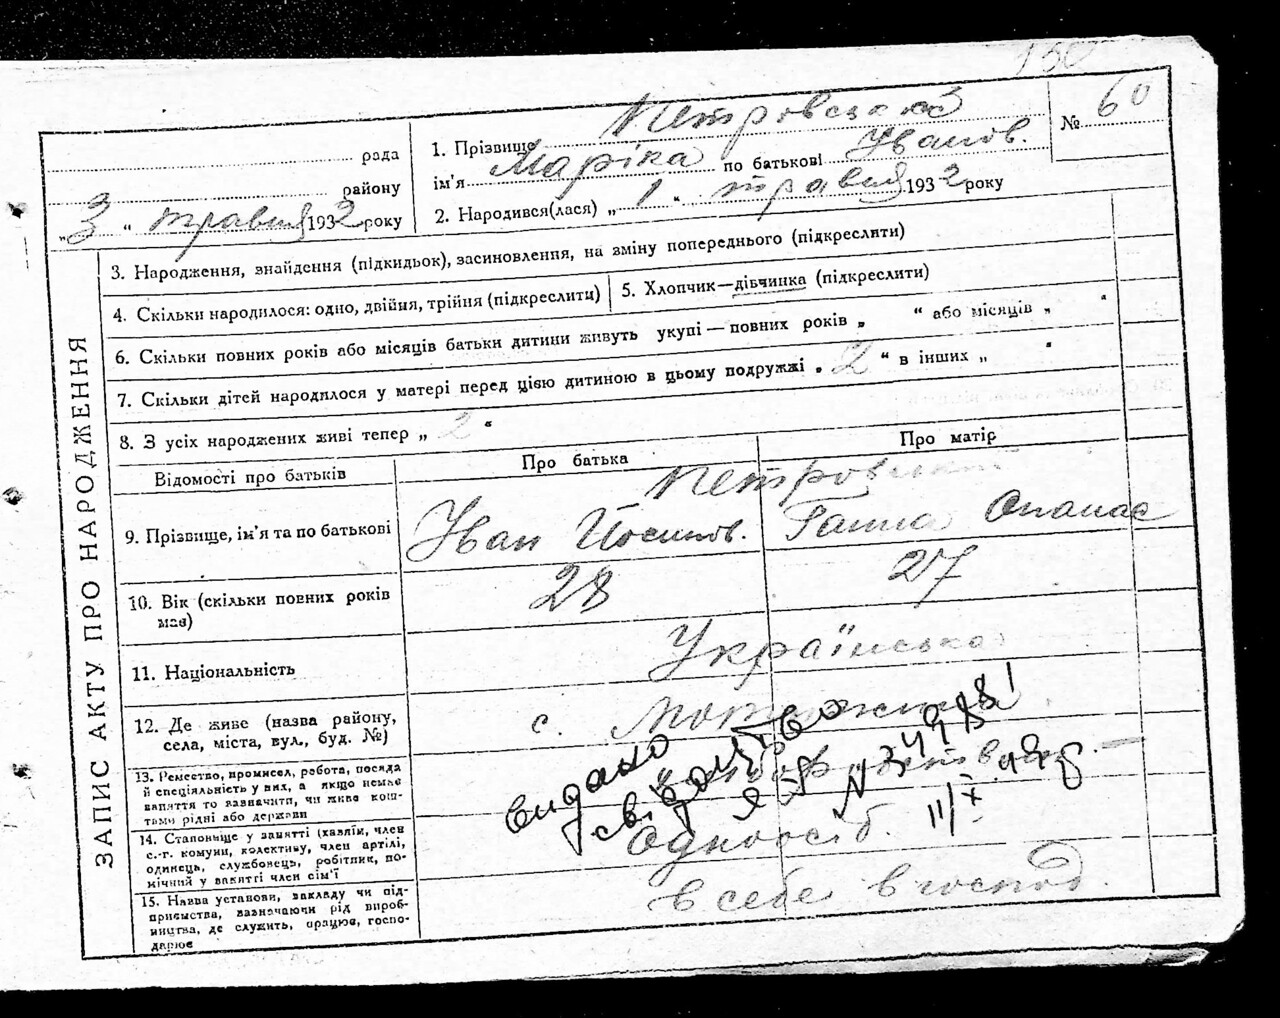 130
№ 60
рада
району
„3“ травня 1932 року
1. Прізвище Петровська
ім'я Маріка по батькові Іванов.
2. Народився(лася) „1“ травня 1932 року
ЗАПИС АКТУ ПРО НАРОДЖЕННЯ
3. Народження, знайдення (підкидьок), засиновлення, на зміну попереднього (підкреслити)
4. Скільки народилося: одно, двійня, трійня (підкреслити)
5. Хлопчик—дівчинка (підкреслити)
6. Скільки повних років або місяців батьки дитини живуть укупі — повних років „ “ або місяців „ “
7. Скільки дітей народилося у матері перед цією дитиною в цьому подружжі „2“ в інших „ “
8. З усіх народжених живі тепер „2“
Відомості про батьків
Про батька
Про матір
9. Прізвище, ім'я та по батькові
Петровські
Іван Йосипов.
Ганна Опанас
10. Вік (скільки повних років мав)
28
27
11. Національність
Українська
12. Де живе (назва району,
села, міста, вул., буд. №)
с.
13. Ремество, промисел, робота, посада
й спеціяльність у них, а якщо немає
заняття то зазначити, чи живе кош-
тами рідні або держави
14. Становище у занятті (хазяїн, член
с.-г. комуни, колективу, член артілі,
одинець, службовець, робітник, по-
мічний у занятті член сім'ї
Одноосіб.
15. Назва установи, закладу чи під-
приємства, зазначаючи рід вироб-
ництва, де служить, працює, госпо-
дарює
в себе в господ.
видано
свідоцтво